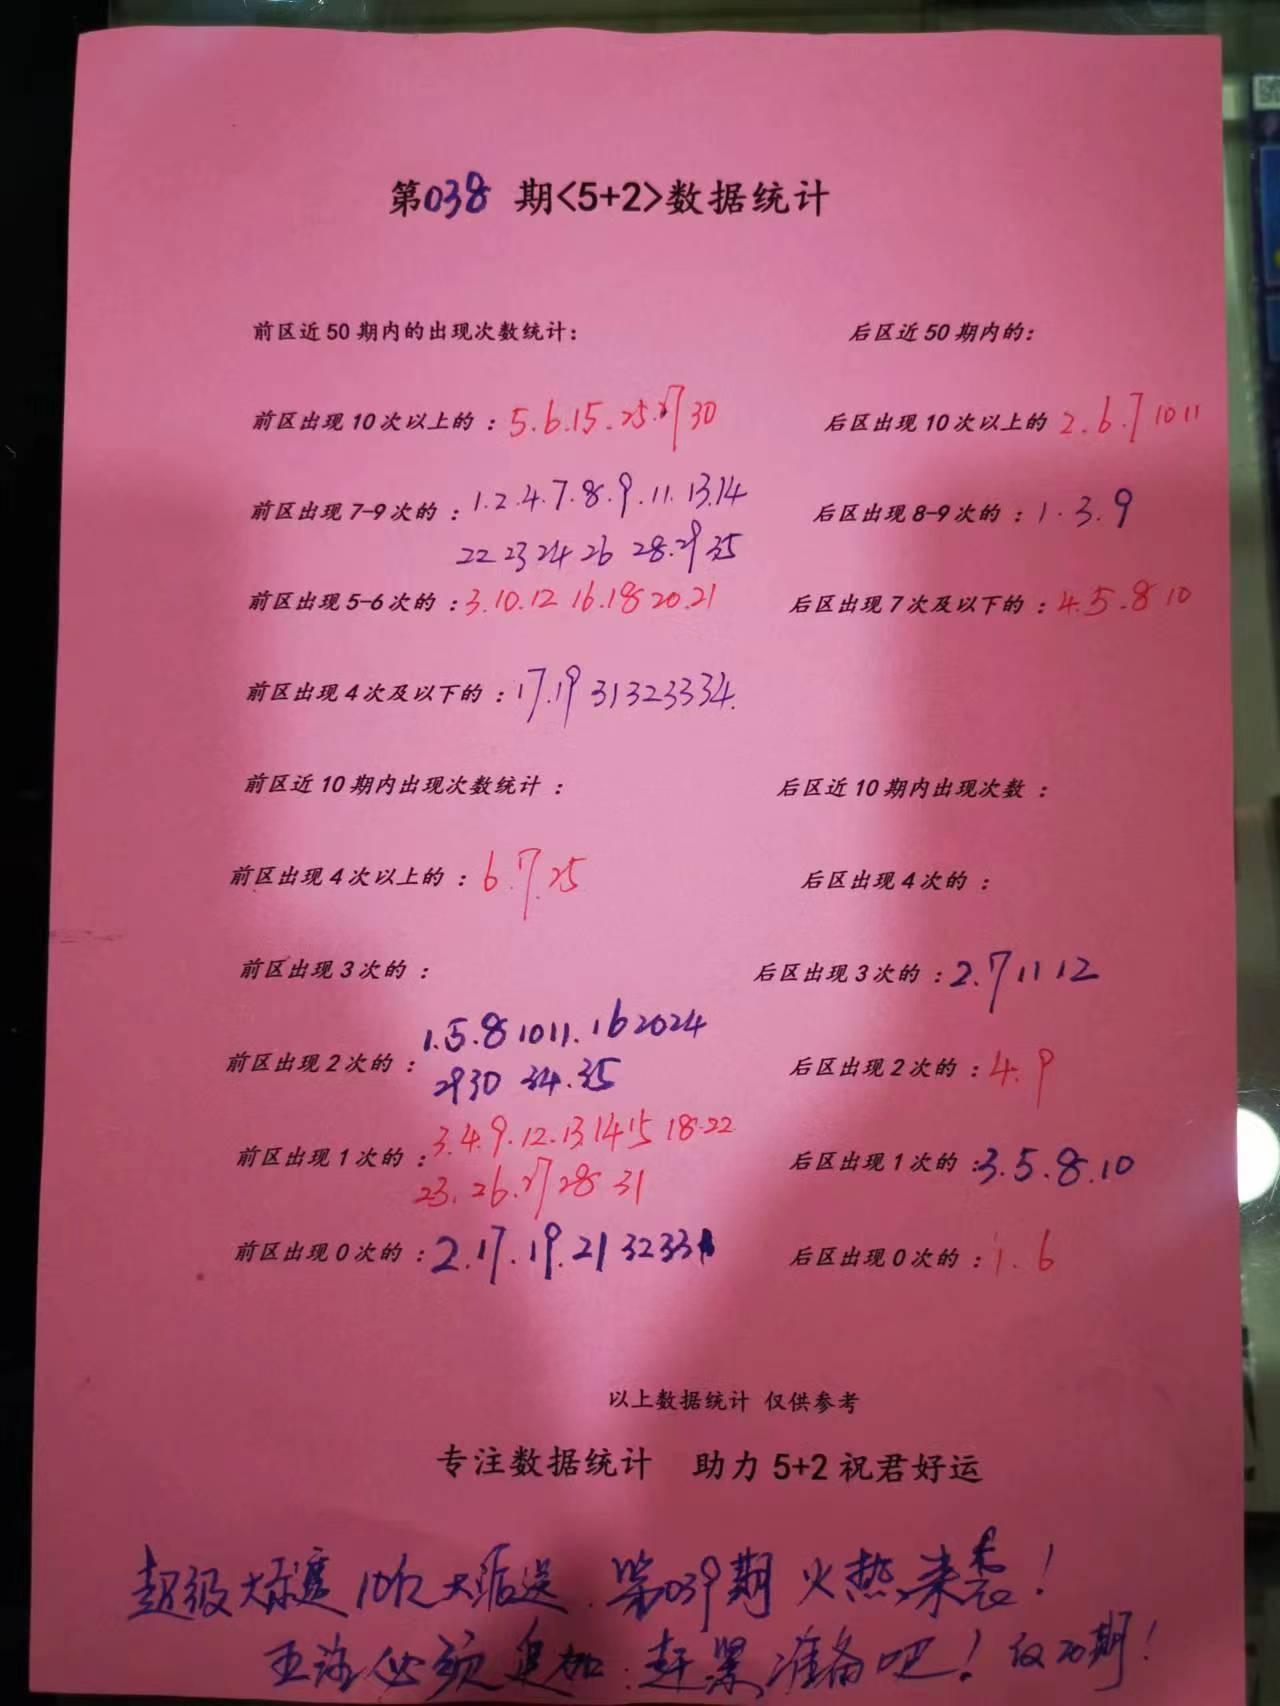 第038 期<5+2>数据统计
前区近50期内的出现次数统计: 后区近50期内的:
前区出现10次以上的: 5.6.15.25.27 30 后区出现10次以上的 2.6.7 10 11
前区出现7-9次的: 1.2.4.7.8.9.11.13.14 后区出现8-9次的: 1.3.9
22 23 24 26 28.29 35
前区出现5-6次的: 3.10.12 16.18 20.21 后区出现7次及以下的: 4.5.8 10
前区出现4次及以下的: 17.19 31 32 33 34.
前区近10期内出现次数统计: 后区近10期内出现次数:
前区出现4次以上的: 6.7.25 后区出现4次的:
前区出现3次的: 后区出现3次的: 2.7 11 12
前区出现2次的: 1.5.8 10 11.16 20 24 后区出现2次的: 4.9
29 30 34.35
前区出现1次的: 3.4.9.12.13 14 15 18.22 后区出现1次的: 3.5.8.10
23.26.27 28 31
前区出现0次的: 2.17.19.21 32 33 后区出现0次的: 1.6
以上数据统计 仅供参考
专注数据统计 助力5+2祝君好运
超级大乐透10亿大派送.第039期 火热来袭!
必须追加.赶紧准备吧!仅20期!